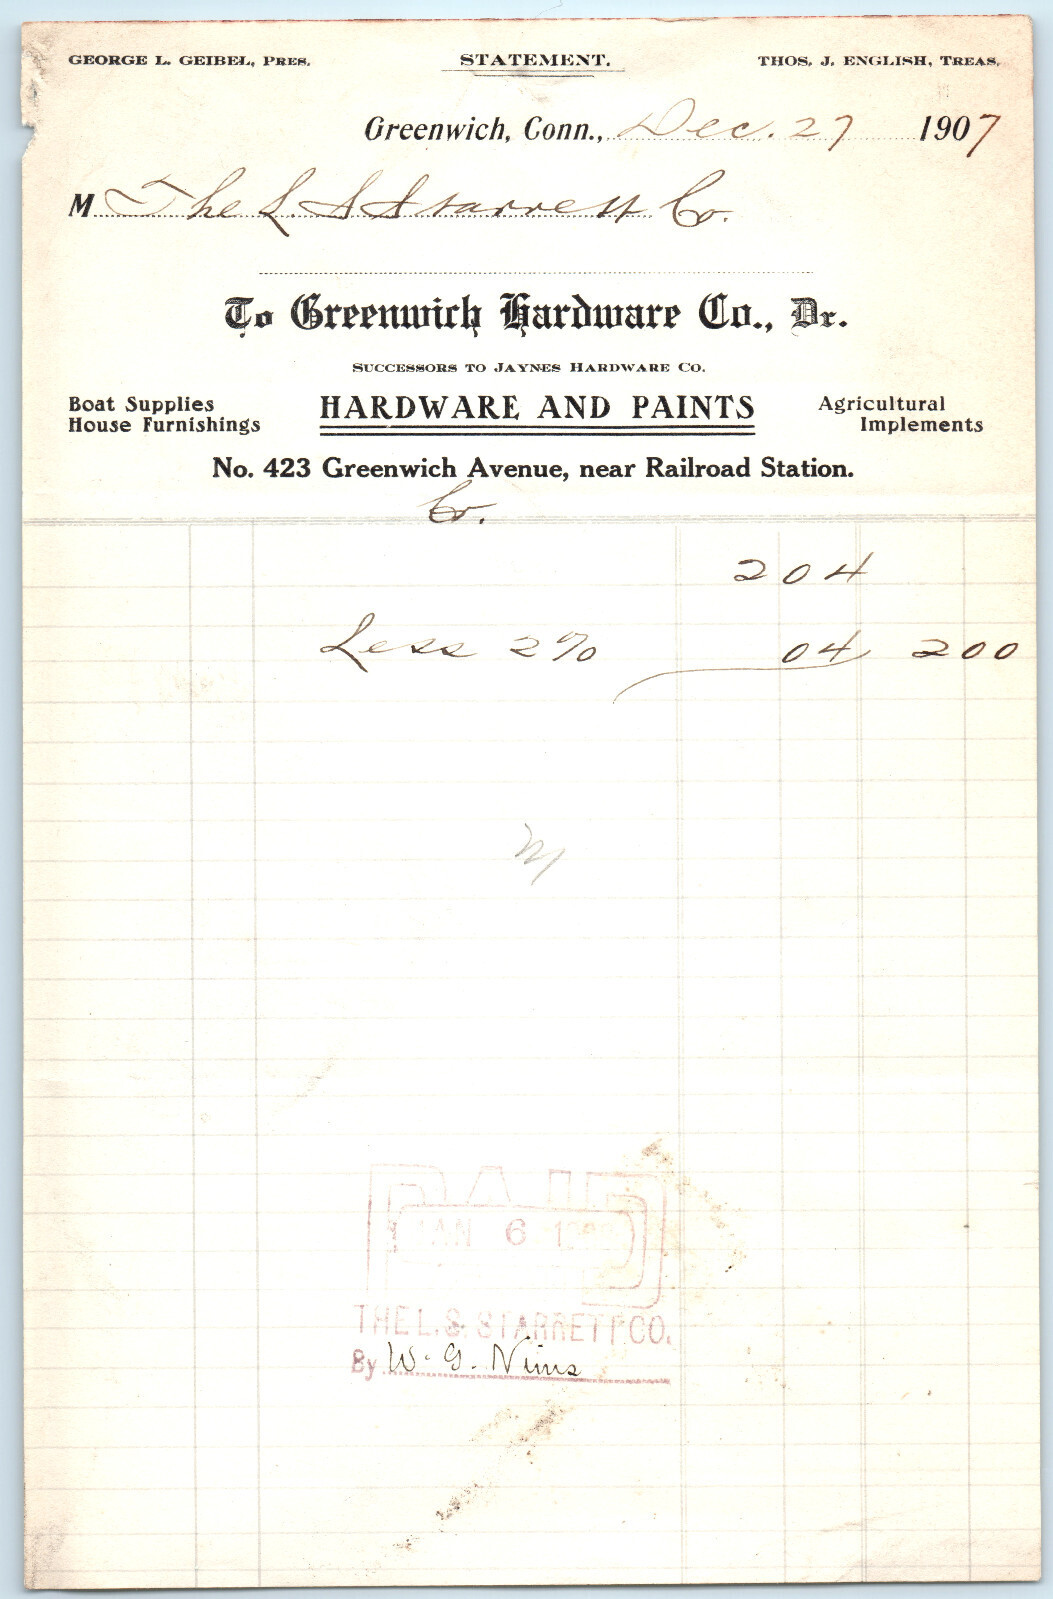 GEORGE L. GEIBEL, PRES.
STATEMENT.
THOS. J. ENGLISH, TREAS.
Greenwich, Conn., Dec. 27 1907
M The L. S. Starrett Co.
To Greenwich Hardware Co., Dr.
SUCCESSORS TO JAYNES HARDWARE CO.
Boat Supplies
House Furnishings
HARDWARE AND PAINTS
Agricultural
Implements
No. 423 Greenwich Avenue, near Railroad Station.
Cr.
2 04
Less 2% 04 2 00
PAID
JAN 6
THE L. S. STARRETT CO.
By W. G. Nims